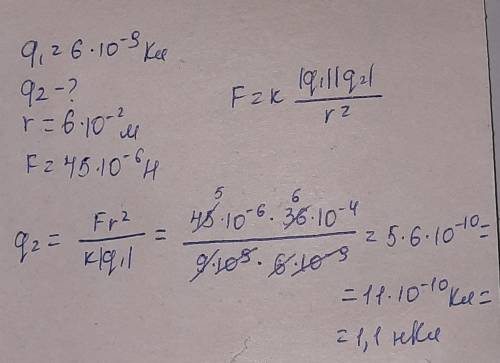 q₁ = 6·10⁻⁹ Кл
q₂ - ?
r = 6·10⁻² м
F = 45·10⁻⁶ Н
F = k |q₁||q₂| / r²
q₂ = Fr² / k|q₁| = 45·10⁻⁶ · 36·10⁻⁴ / 9·10⁹ · 6·10⁻⁹ = 5·6·10⁻¹⁰ =
5 6
= 11·10⁻¹⁰ Кл =
= 1,1 нКл